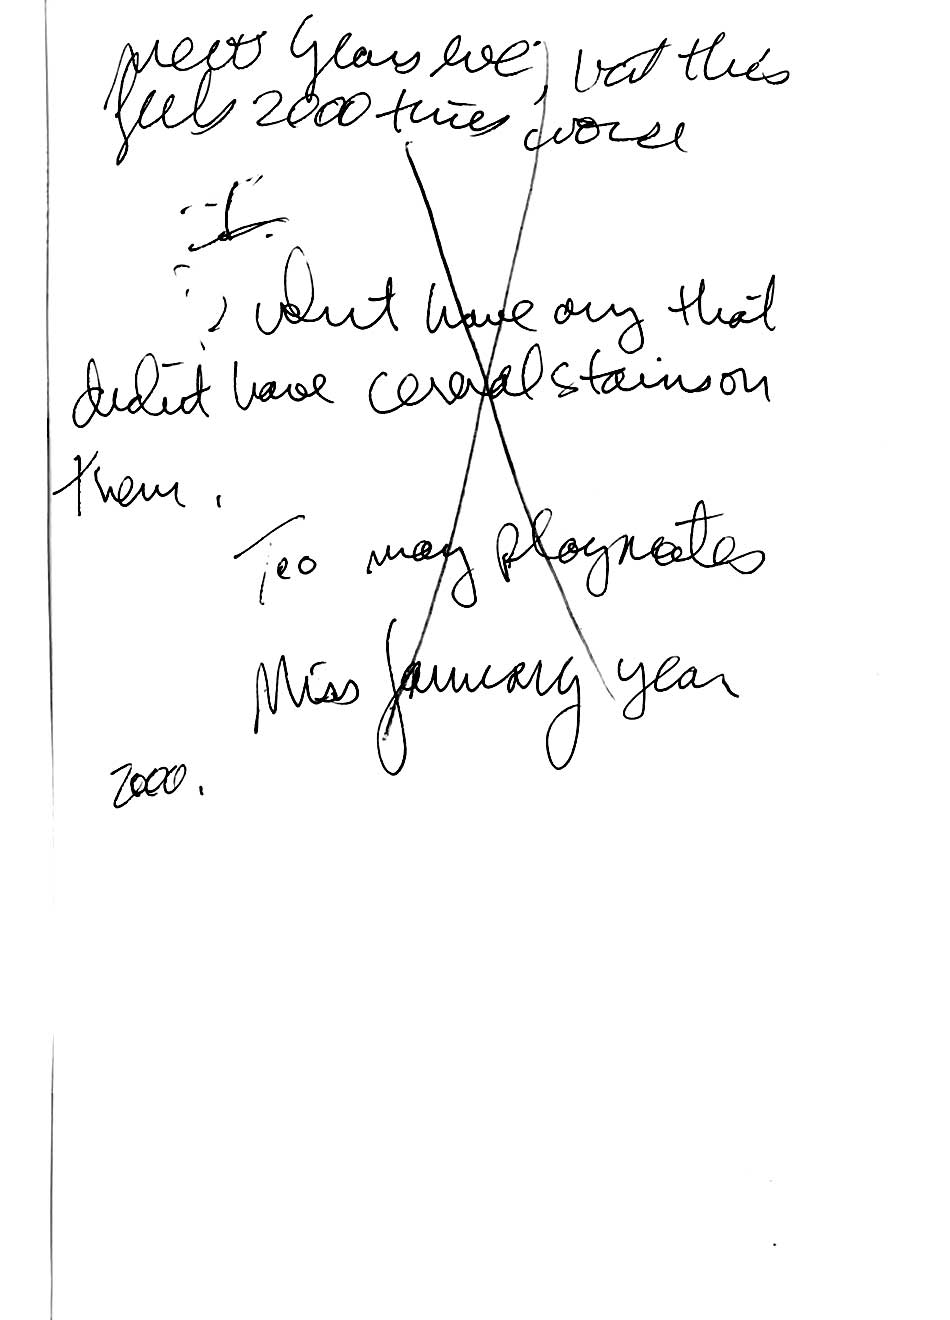 new Years eve, but this
feels 2000 times worse
I
, won't have any that
didn't have cereal stains on
them.
Too many playmates
Miss January year
2000.